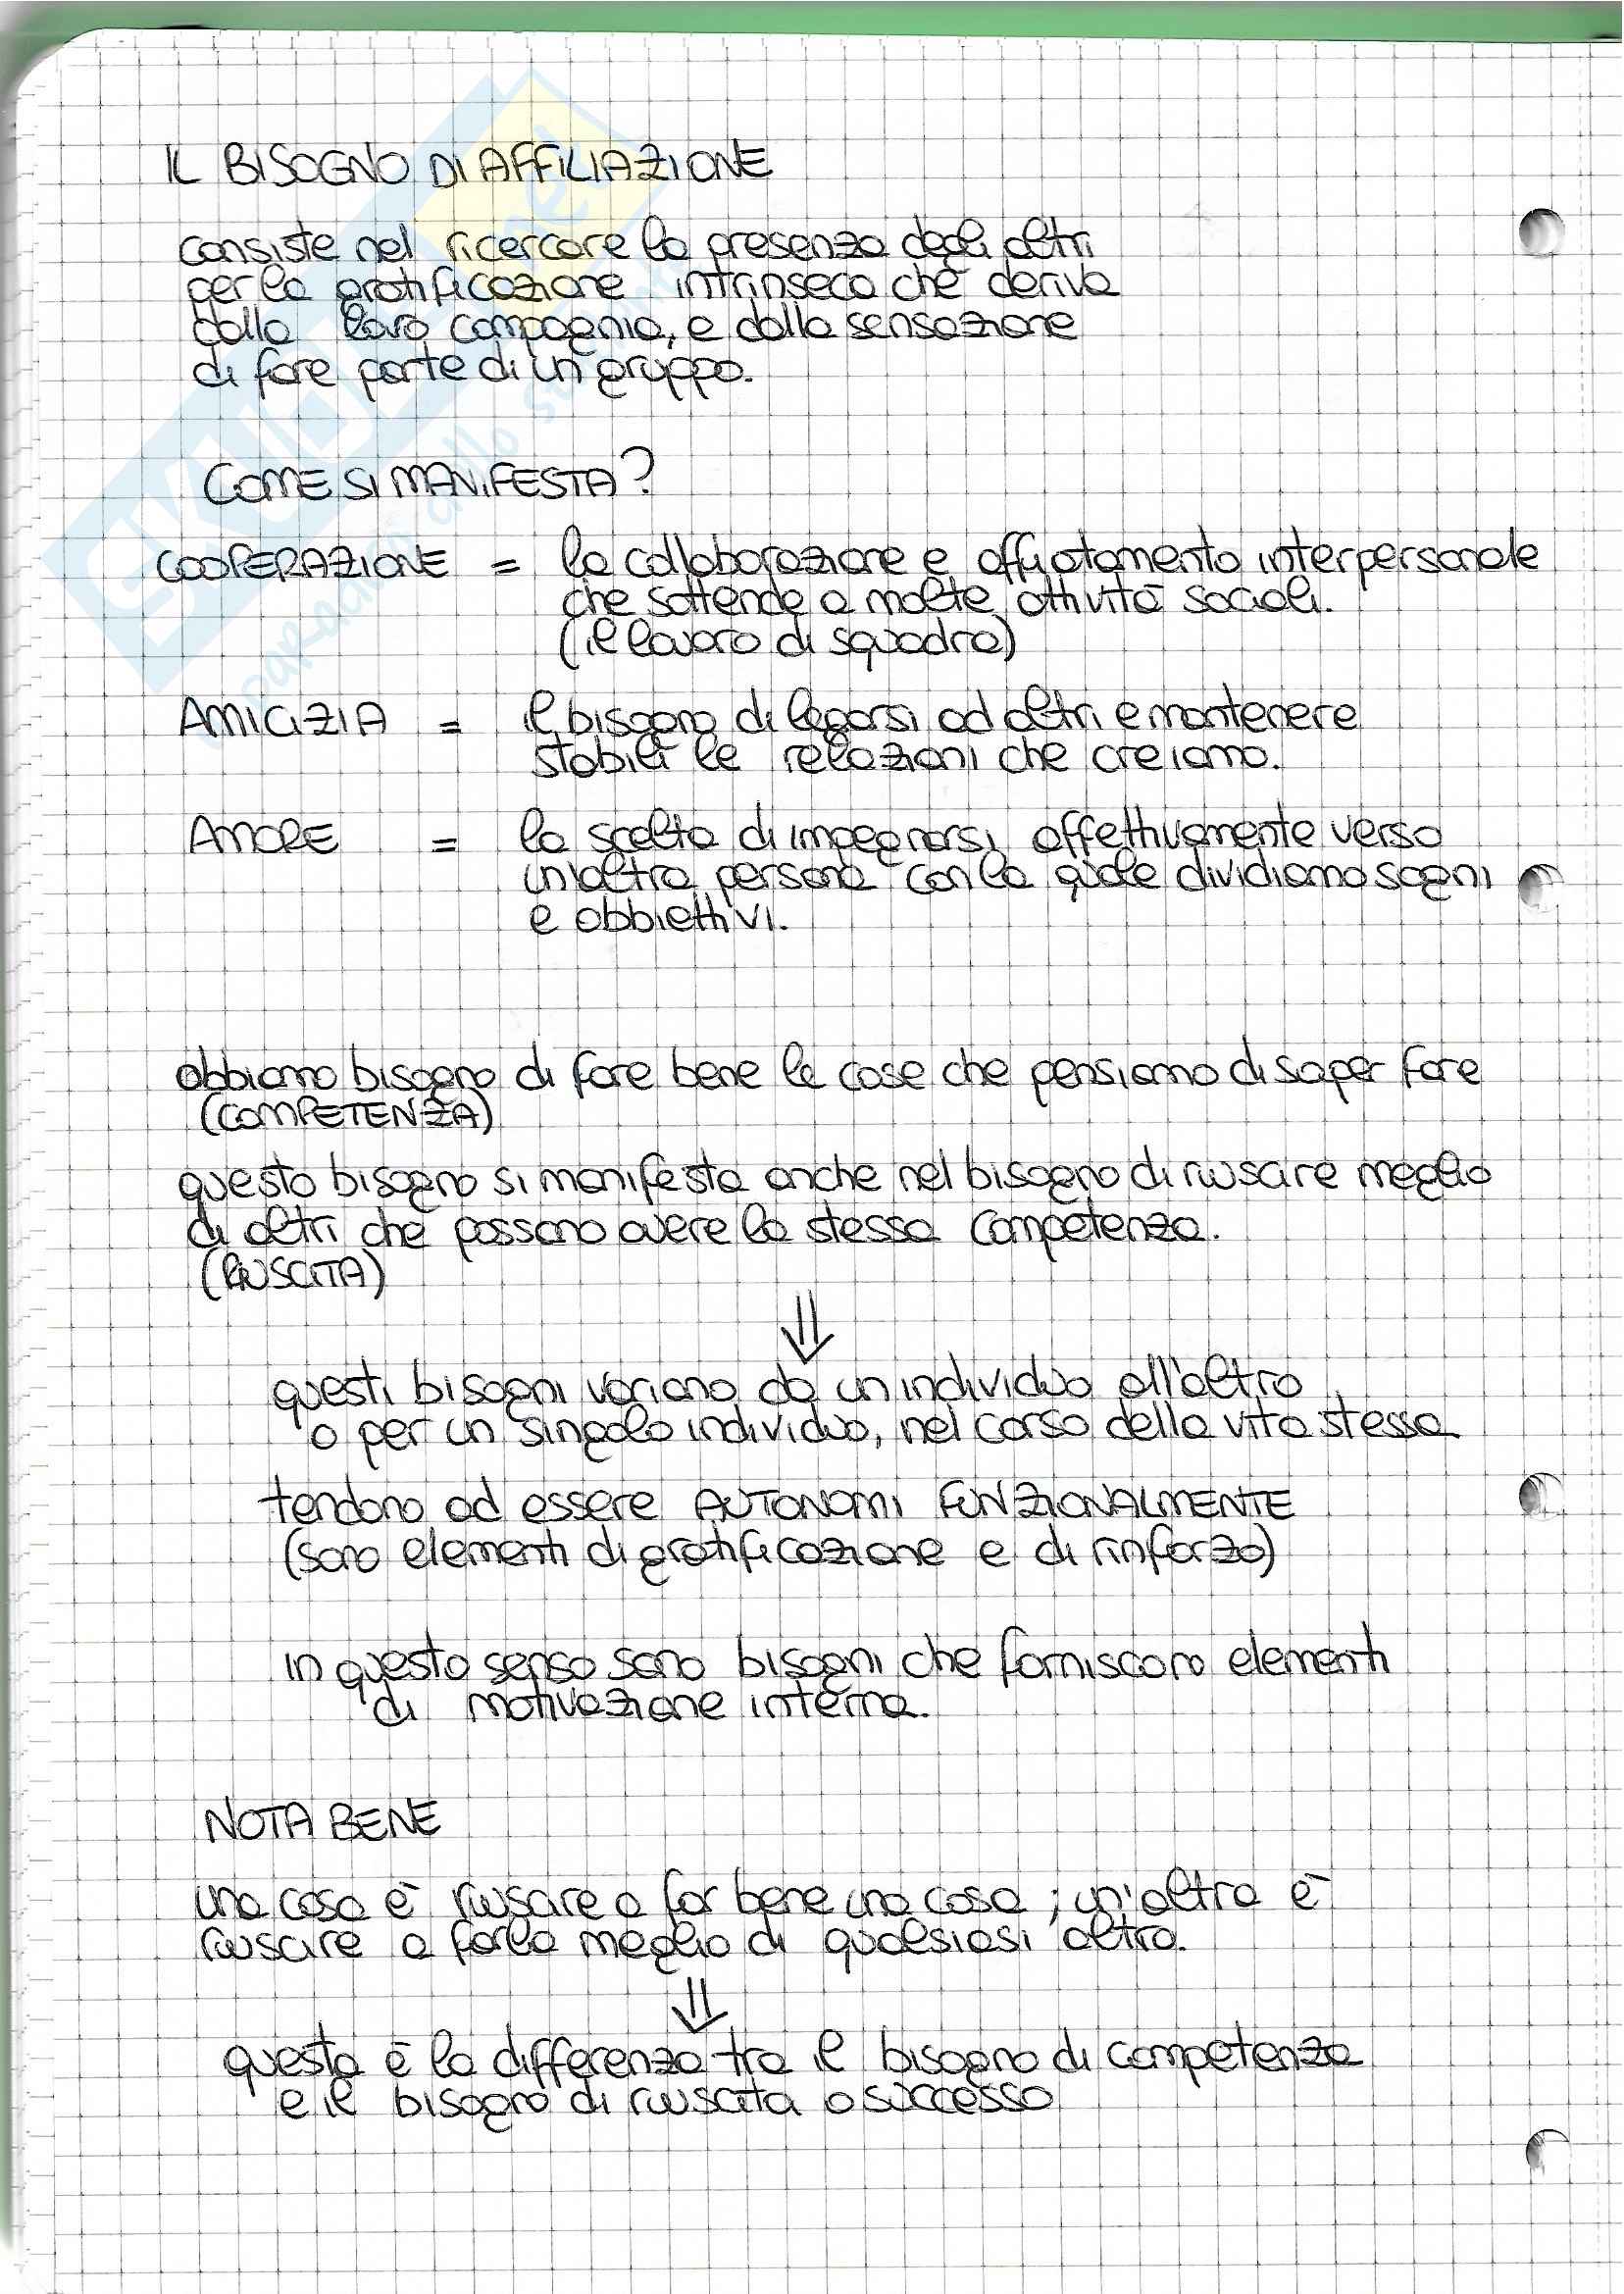 IL BISOGNO DI AFFILIAZIONE
consiste nel ricercare la presenza degli altri
per la gratificazione intrinseca che deriva
dalla loro compagnia, e dalla sensazione
di fare parte di un gruppo.
COME SI MANIFESTA?
COOPERAZIONE = la collaborazione e affiatamento interpersonale
che sottende a molte attività sociali.
(il lavoro di squadra)
AMICIZIA = il bisogno di legarsi ad altri e mantenere
stabili le relazioni che creiamo.
AMORE = la scelta di impegnarsi affettivamente verso
un'altra persona con la quale dividiamo sogni
e obbiettivi.
abbiamo bisogno di fare bene le cose che pensiamo di saper fare
(COMPETENZA)
questo bisogno si manifesta anche nel bisogno di riuscire meglio
di altri che possono avere la stessa competenza.
(RIUSCITA)
⇓
questi bisogni variano da un individuo all'altro
o per un singolo individuo, nel corso della vita stessa
tendono ad essere AUTONOMI FUNZIONALMENTE
(sono elementi di gratificazione e di rinforzo)
in questo senso sono bisogni che forniscono elementi
di motivazione interna.
NOTA BENE
una cosa è riuscire a far bene una cosa; un'altra è
riuscire a farla meglio di qualsiasi altro.
⇓
questa è la differenza tra il bisogno di competenza
e il bisogno di riuscita o successo